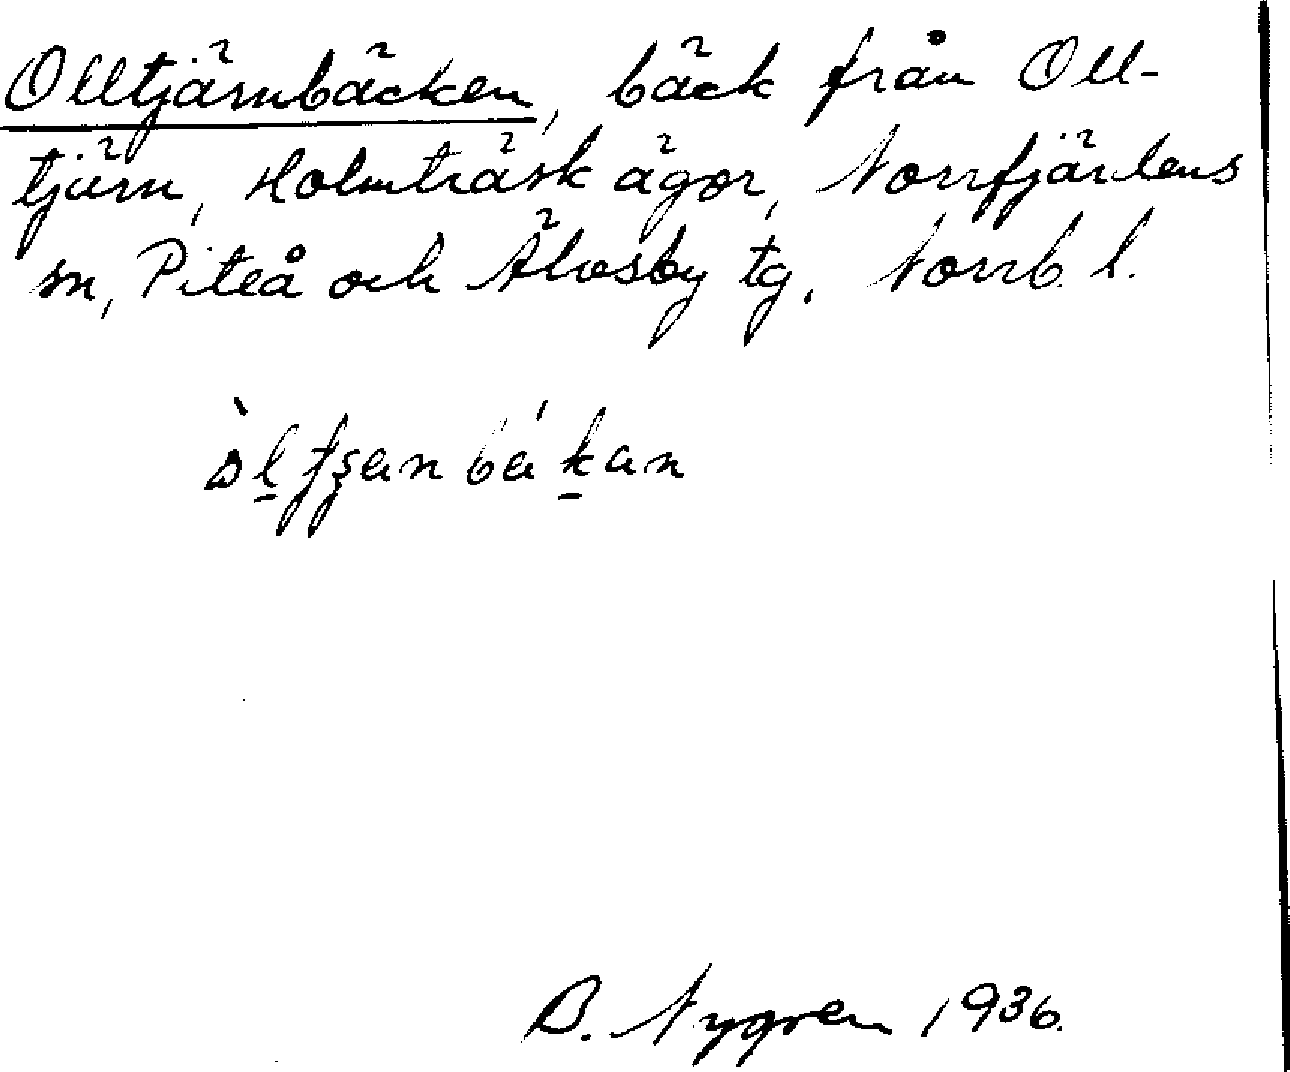 Olltjärnbäcken, bäck från Oll-
tjärn, Holmträsk ägor, Norrfjärdens
sn, Piteå och Älvsby tg. Norrb. l.
B. Nygren 1936.